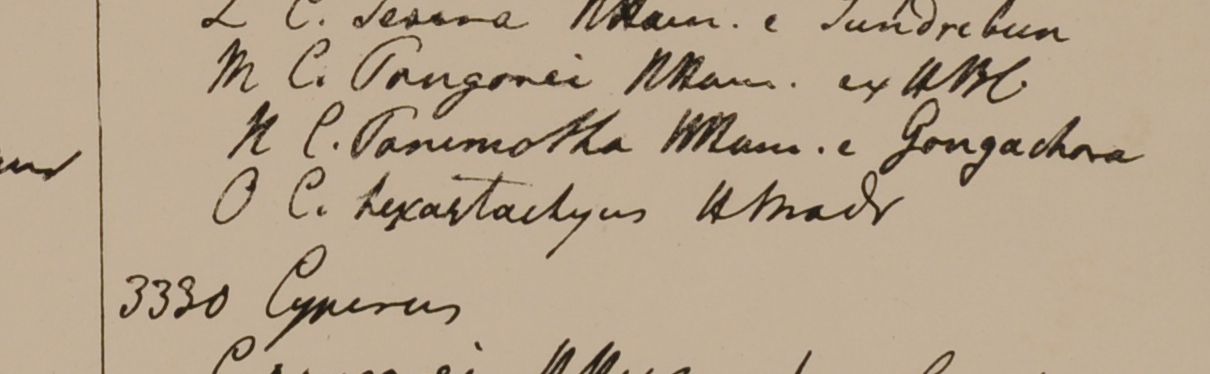 L C. Tesara HHam. e Sundrebun
M C. Pangorei HHam. ex HBC
N C. Panimotha HHam. e Gongachora
O C. hexastachyus HMadr
3330 Cyperus